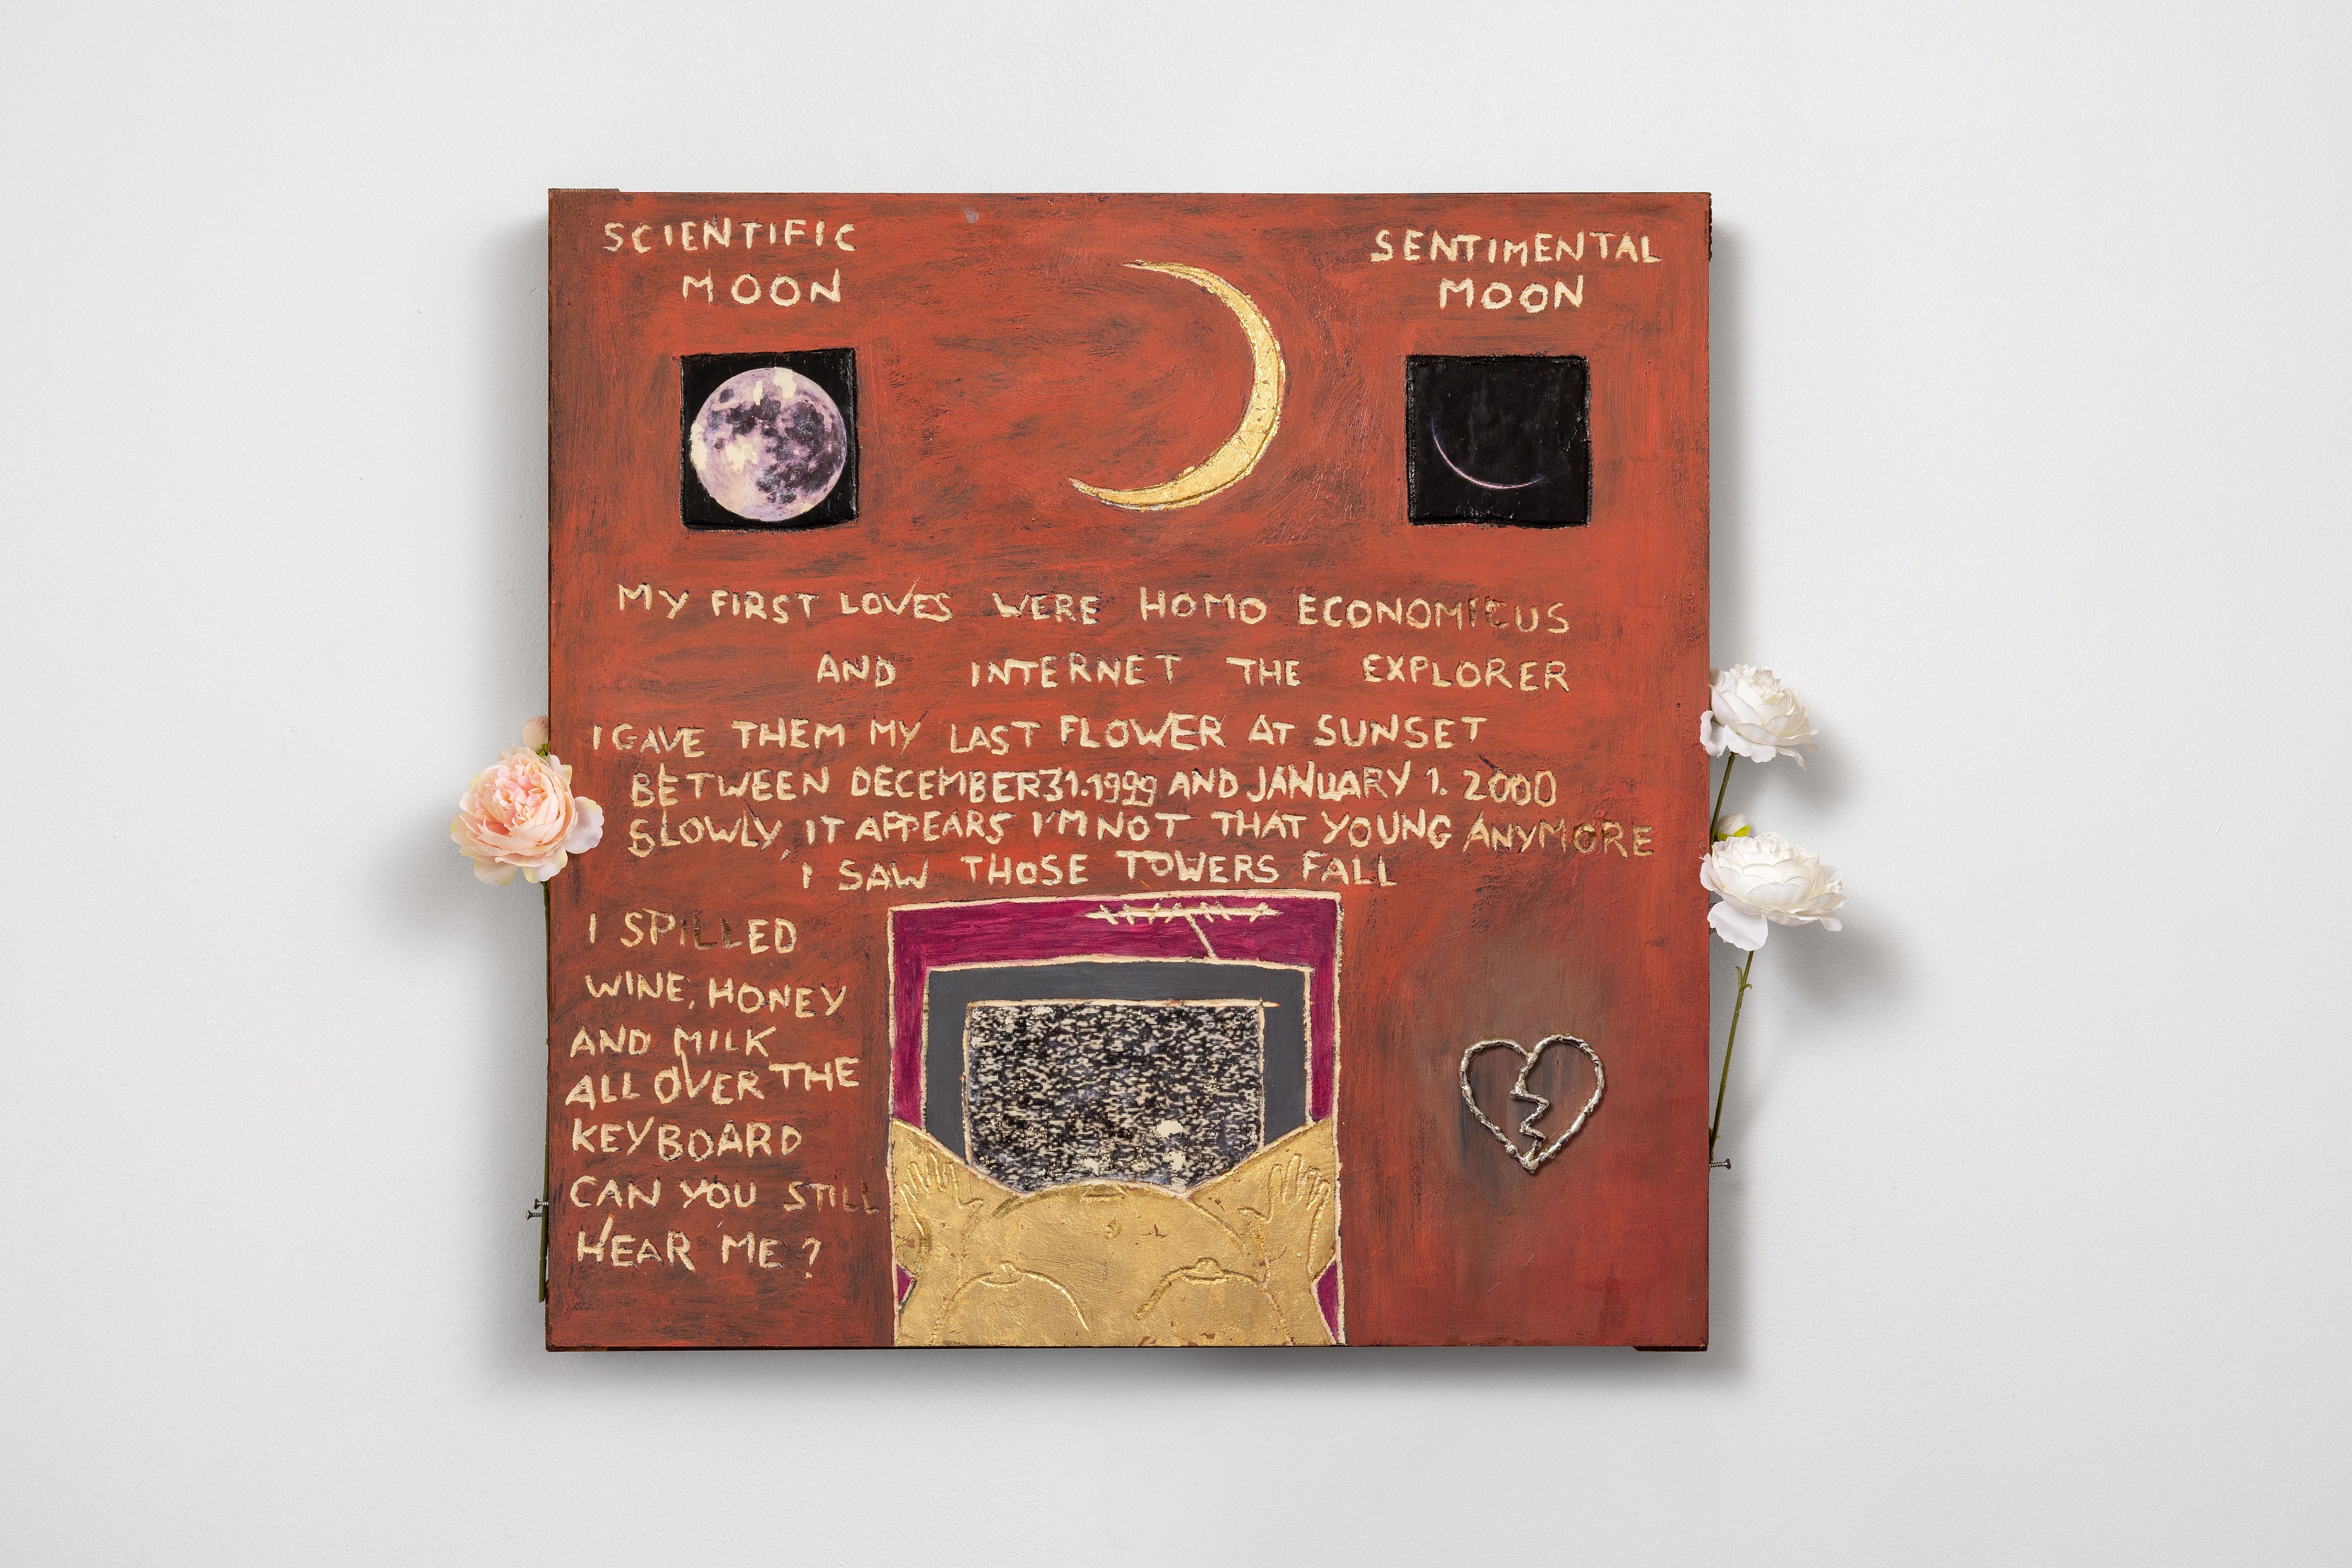 SCIENTIFIC
MOON
SENTIMENTAL
MOON
MY FIRST LOVES WERE HOMO ECONOMICUS
AND INTERNET THE EXPLORER
I GAVE THEM MY LAST FLOWER AT SUNSET
BETWEEN DECEMBER 31.1999 AND JANUARY 1. 2000
SLOWLY, IT APPEARS I'M NOT THAT YOUNG ANYMORE
I SAW THOSE TOWERS FALL
I SPILLED
WINE, HONEY
AND MILK
ALL OVER THE
KEYBOARD
CAN YOU STILL
HEAR ME?